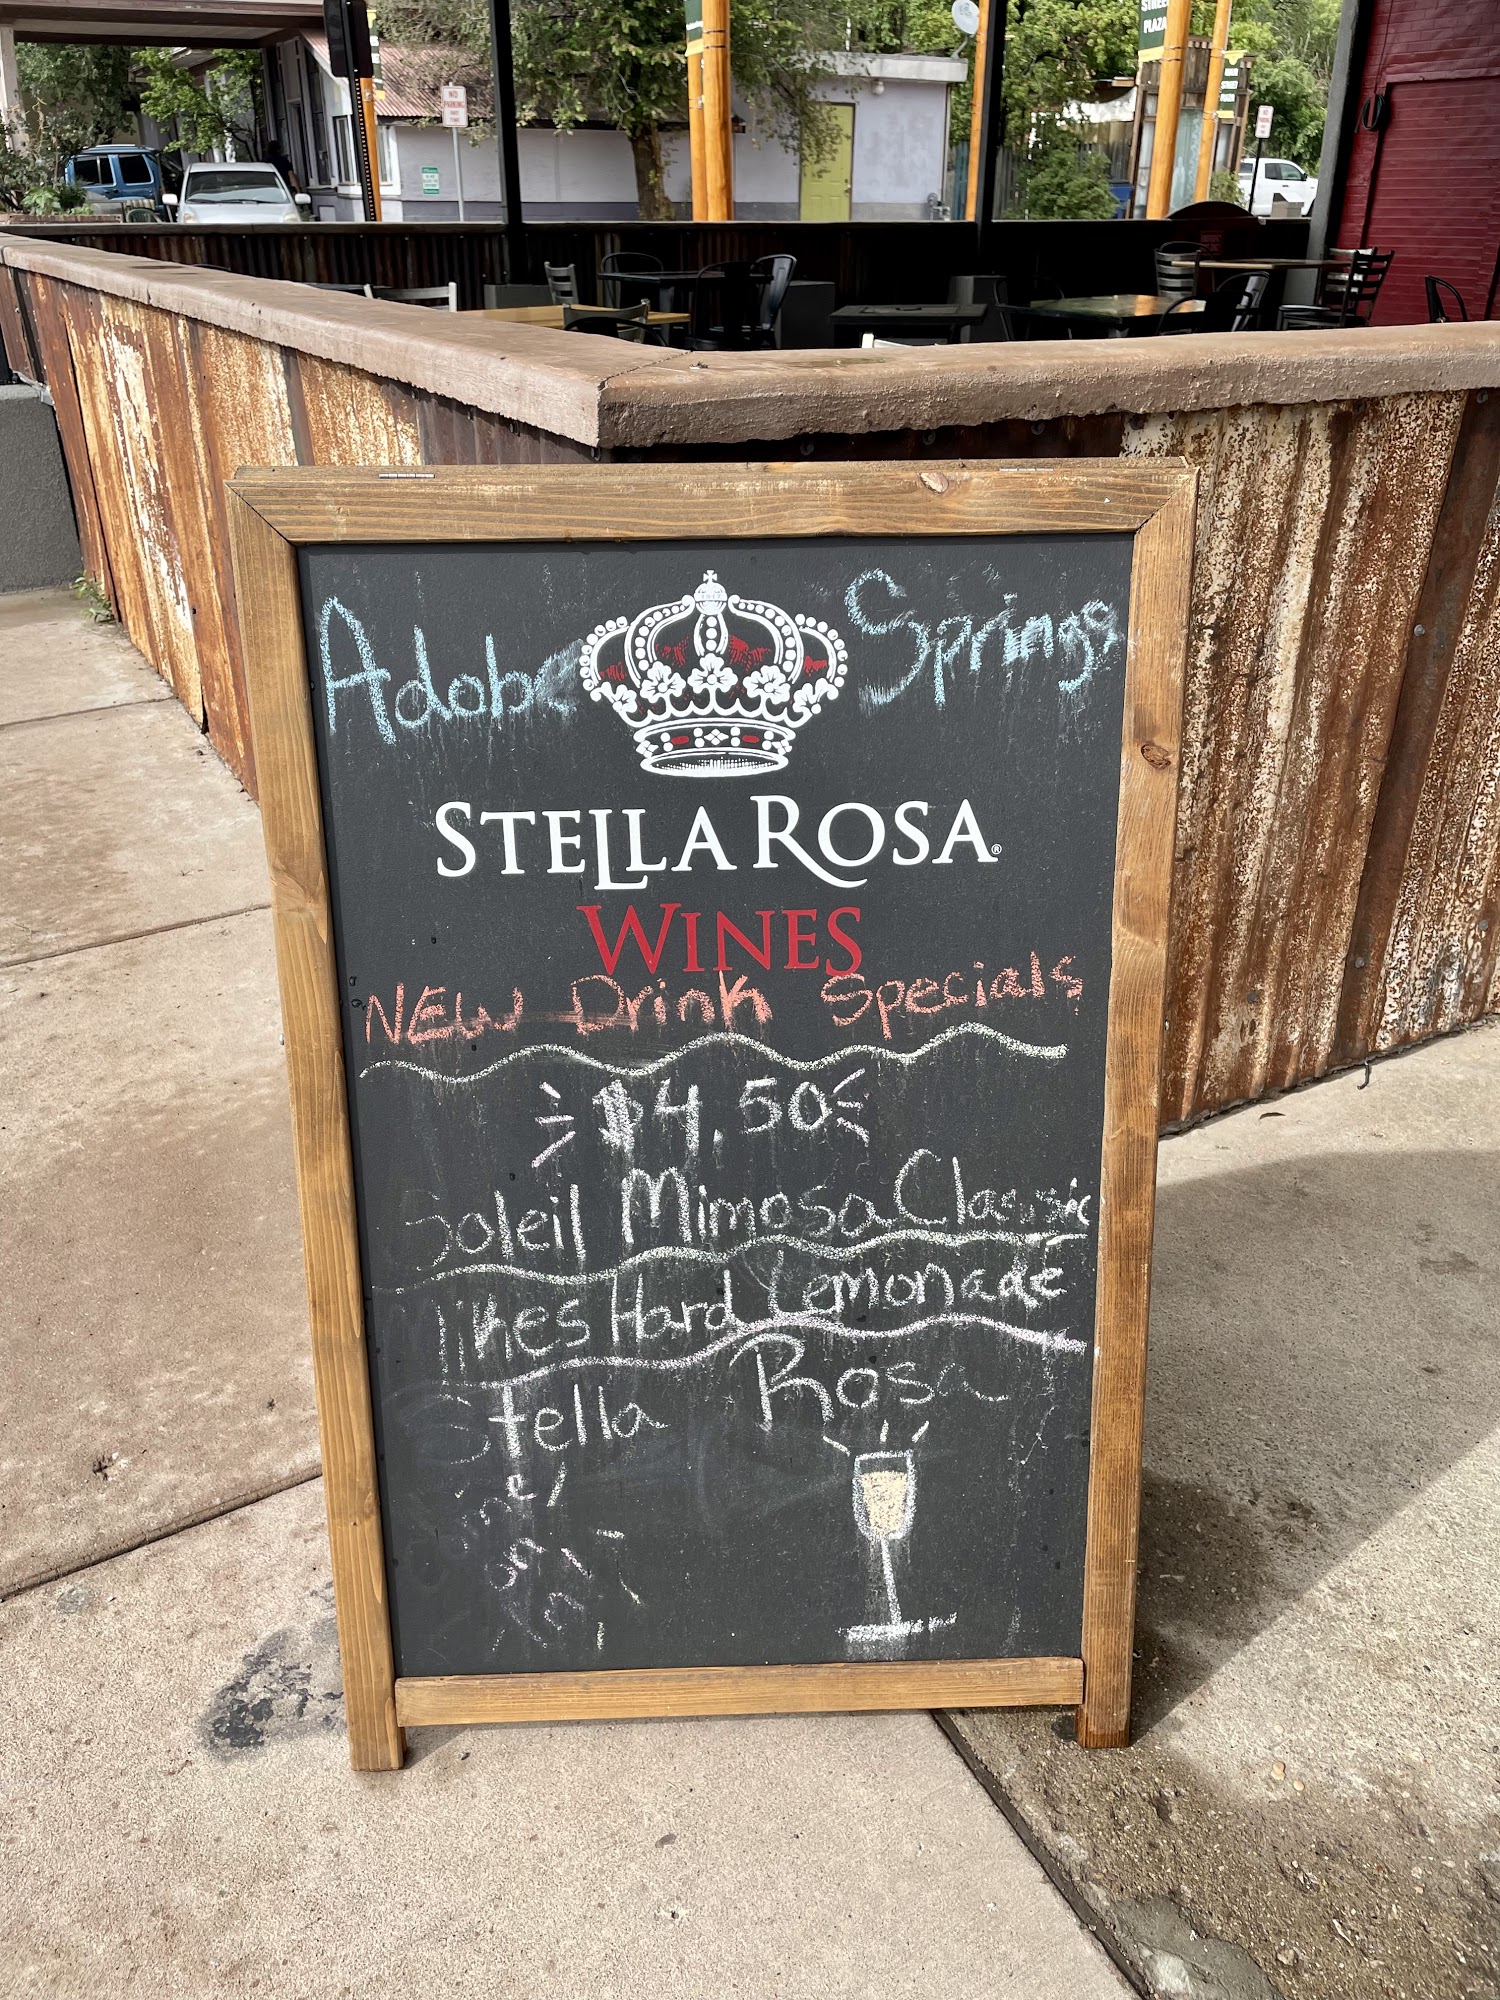 STREET
PLAZA
NO
PARKING
Adobe Springs
STELLA ROSA®
WINES
NEW Drink Specials
$4.50
Soleil Mimosa Classic
Mikes Hard Lemonade
Stella Rosa